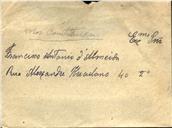 Exmo Snr
Francisco Antonio d'Almeida
Rua Alexandre Herculano 40 2º